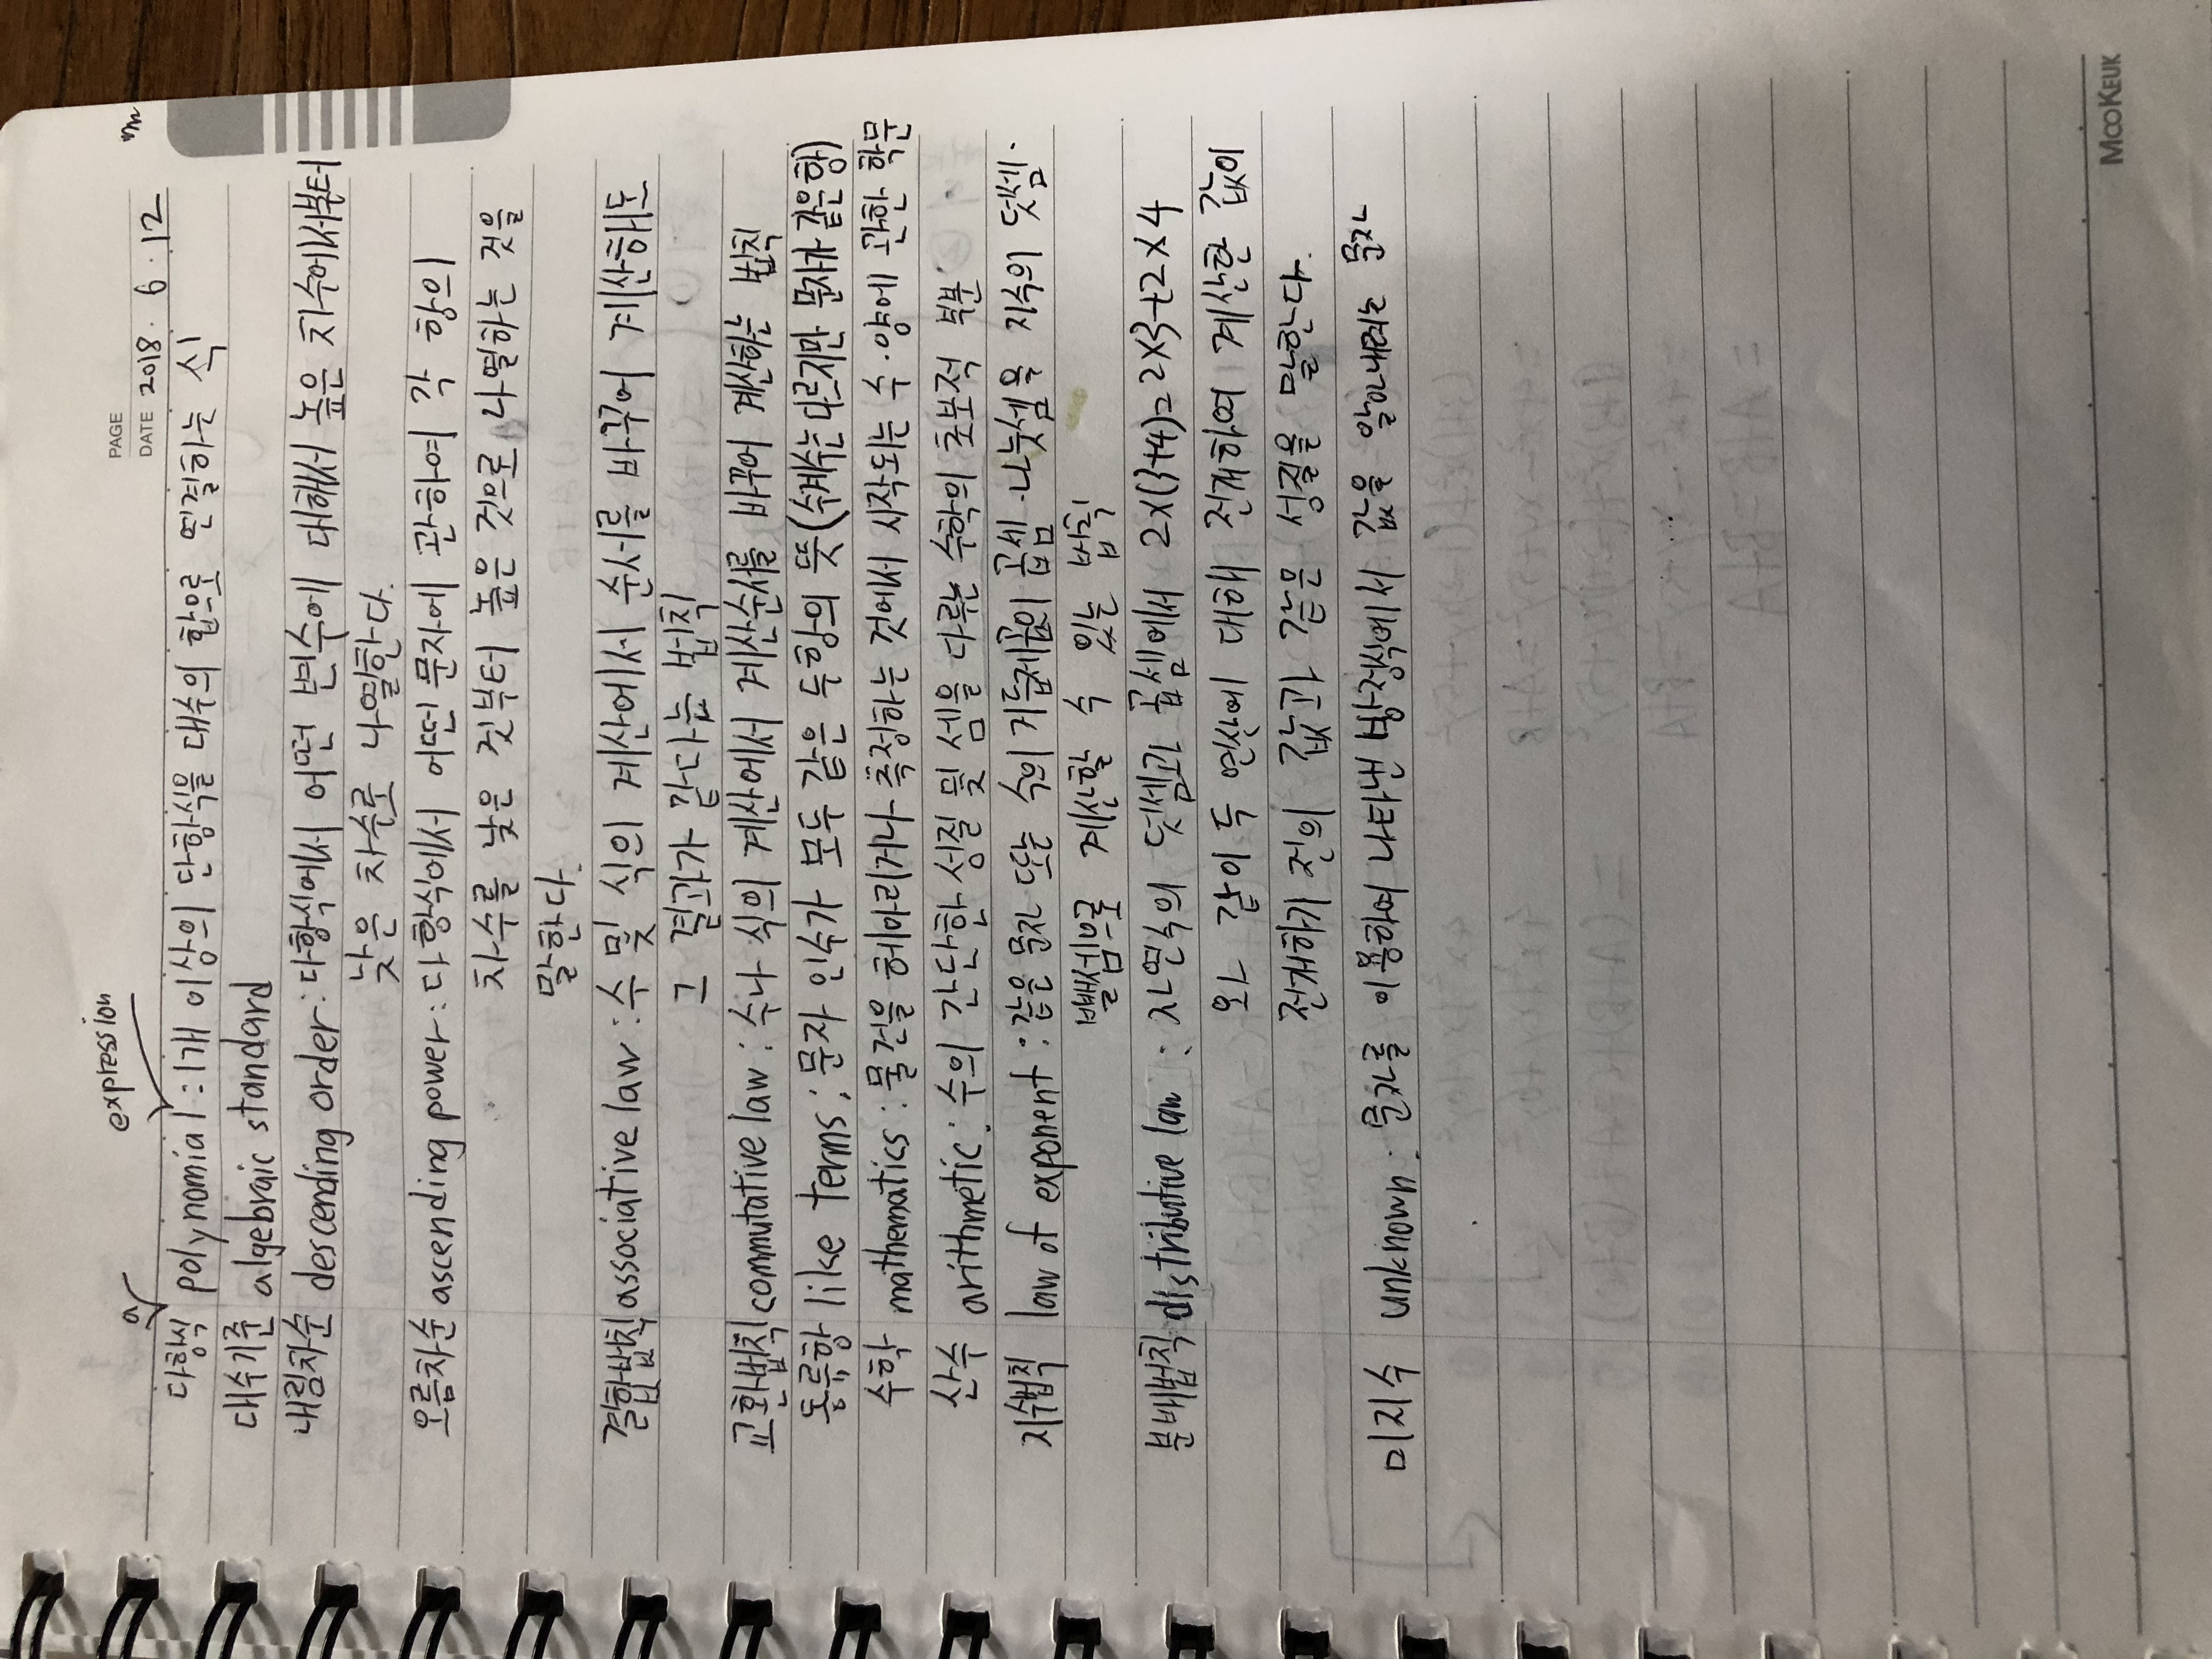 PAGE
DATE 2018. 6. 12
a expression
다항식 polynomial : 1개 이상의 단항식을 대수의 합으로 연결하는 식
대수기준 algebraic standard
내림차순 descending order : 다항식에서 어떤 변수에 대해서 높은 차수에서부터
낮은 차수로 나열한다.
오름차순 ascending power : 다항식에서 어떤 문자에 관하여 각 항의
차수를 낮은 것부터 높은 것으로 나열하는 것을
말한다.
결합법칙 associative law : 수 및 식의 계산에서 순서를 바꾸어 계산해도
그 결과가 같다는 법칙
교환법칙 commutative law : 수나 식의 계산에서 계산순서를 바꾸어 계산하는 법칙
동류항 like terms : 문자 인수가 모두 같은 두항의 뜻(수계수는 다르지만 문자가 같은항)
수학 mathematics : 물건을 헤아리거나 측정하는 것에서 시작되는 수·양에 관한 학문
산수 arithmetic : 수의 간단한 성질 및 셈을 다루는 수학의 초보적 부분.
지수법칙 law of exponent : 같은 문자 또는 수의 거듭제곱의 곱셈·나눗셈을 지수의 덧셈·
뺄셈으로 계산할 수 있는 법칙
분배법칙 distributive law : 자연수의 덧셈과 곱셈에서 2×(3+4)=2×3+2×4
와 같이 두 연산에 대해 전개하여 계산한 값이
전개하기 전의 값과 같은 성질을 말한다.
미지수 unknown : 문자를 이용하여 나타낸 방정식에서 값을 알아내려는 문자
MOOKEUK